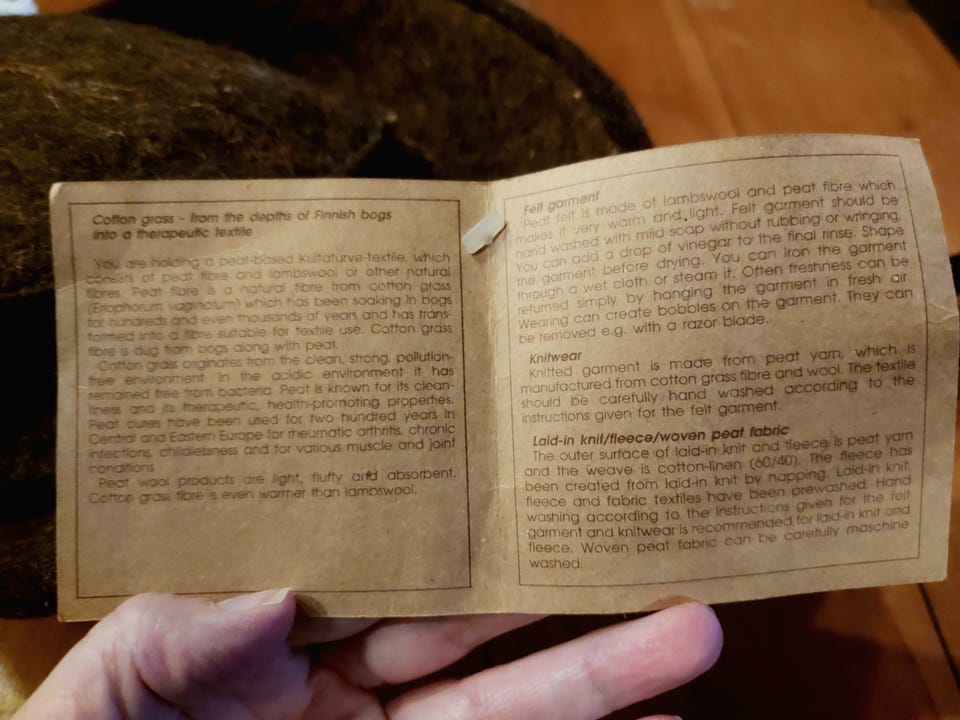 Cotton grass - from the depths of Finnish bogs
into a therapeutic textile
You are holding a peat-based Kultaturve-textile, which
consists of peat fibre and lambswool or other natural
fibres. Peat fibre is a natural fibre from cotton grass
(Eriophorum vaginatum) which has been soaking in bogs
for hundreds and even thousands of years and has trans-
formed into a fibre suitable for textile use. Cotton grass
fibre is dug from bogs along with peat.
Cotton grass originates from the clean, strong, pollution-
free environment. In the acidic environment it has
remained free from bacteria. Peat is known for its clean-
liness and its therapeutic, health-promoting properties.
Peat cures have been used for two hundred years in
Central and Eastern Europe for rheumatic arthritis, chronic
infections, childlessness and for various muscle and joint
conditions.
Peat wool products are light, fluffy and absorbent.
Cotton grass fibre is even warmer than lambswool.
Felt garment
Peat felt is made of lambswool and peat fibre which
makes it very warm and light. Felt garment should be
hand washed with mild soap without rubbing or wringing.
You can add a drop of vinegar to the final rinse. Shape
the garment before drying. You can iron the garment
through a wet cloth or steam it. Often freshness can be
returned simply by hanging the garment in fresh air.
Wearing can create bobbles on the garment. They can
be removed e.g. with a razor blade.
Knitwear
Knitted garment is made from peat yarn, which is
manufactured from cotton grass fibre and wool. The textile
should be carefully hand washed according to the
instructions given for the felt garment.
Laid-in knit/fleece/woven peat fabric
The outer surface of laid-in knit and fleece is peat yarn
and the weave is cotton-linen (60/40). The fleece has
been created from laid-in knit by napping. Laid-in knit,
fleece and fabric textiles have been prewashed. Hand
washing according to the instructions given for the felt
garment and knitwear is recommended for laid-in knit and
fleece. Woven peat fabric can be carefully maschine
washed.